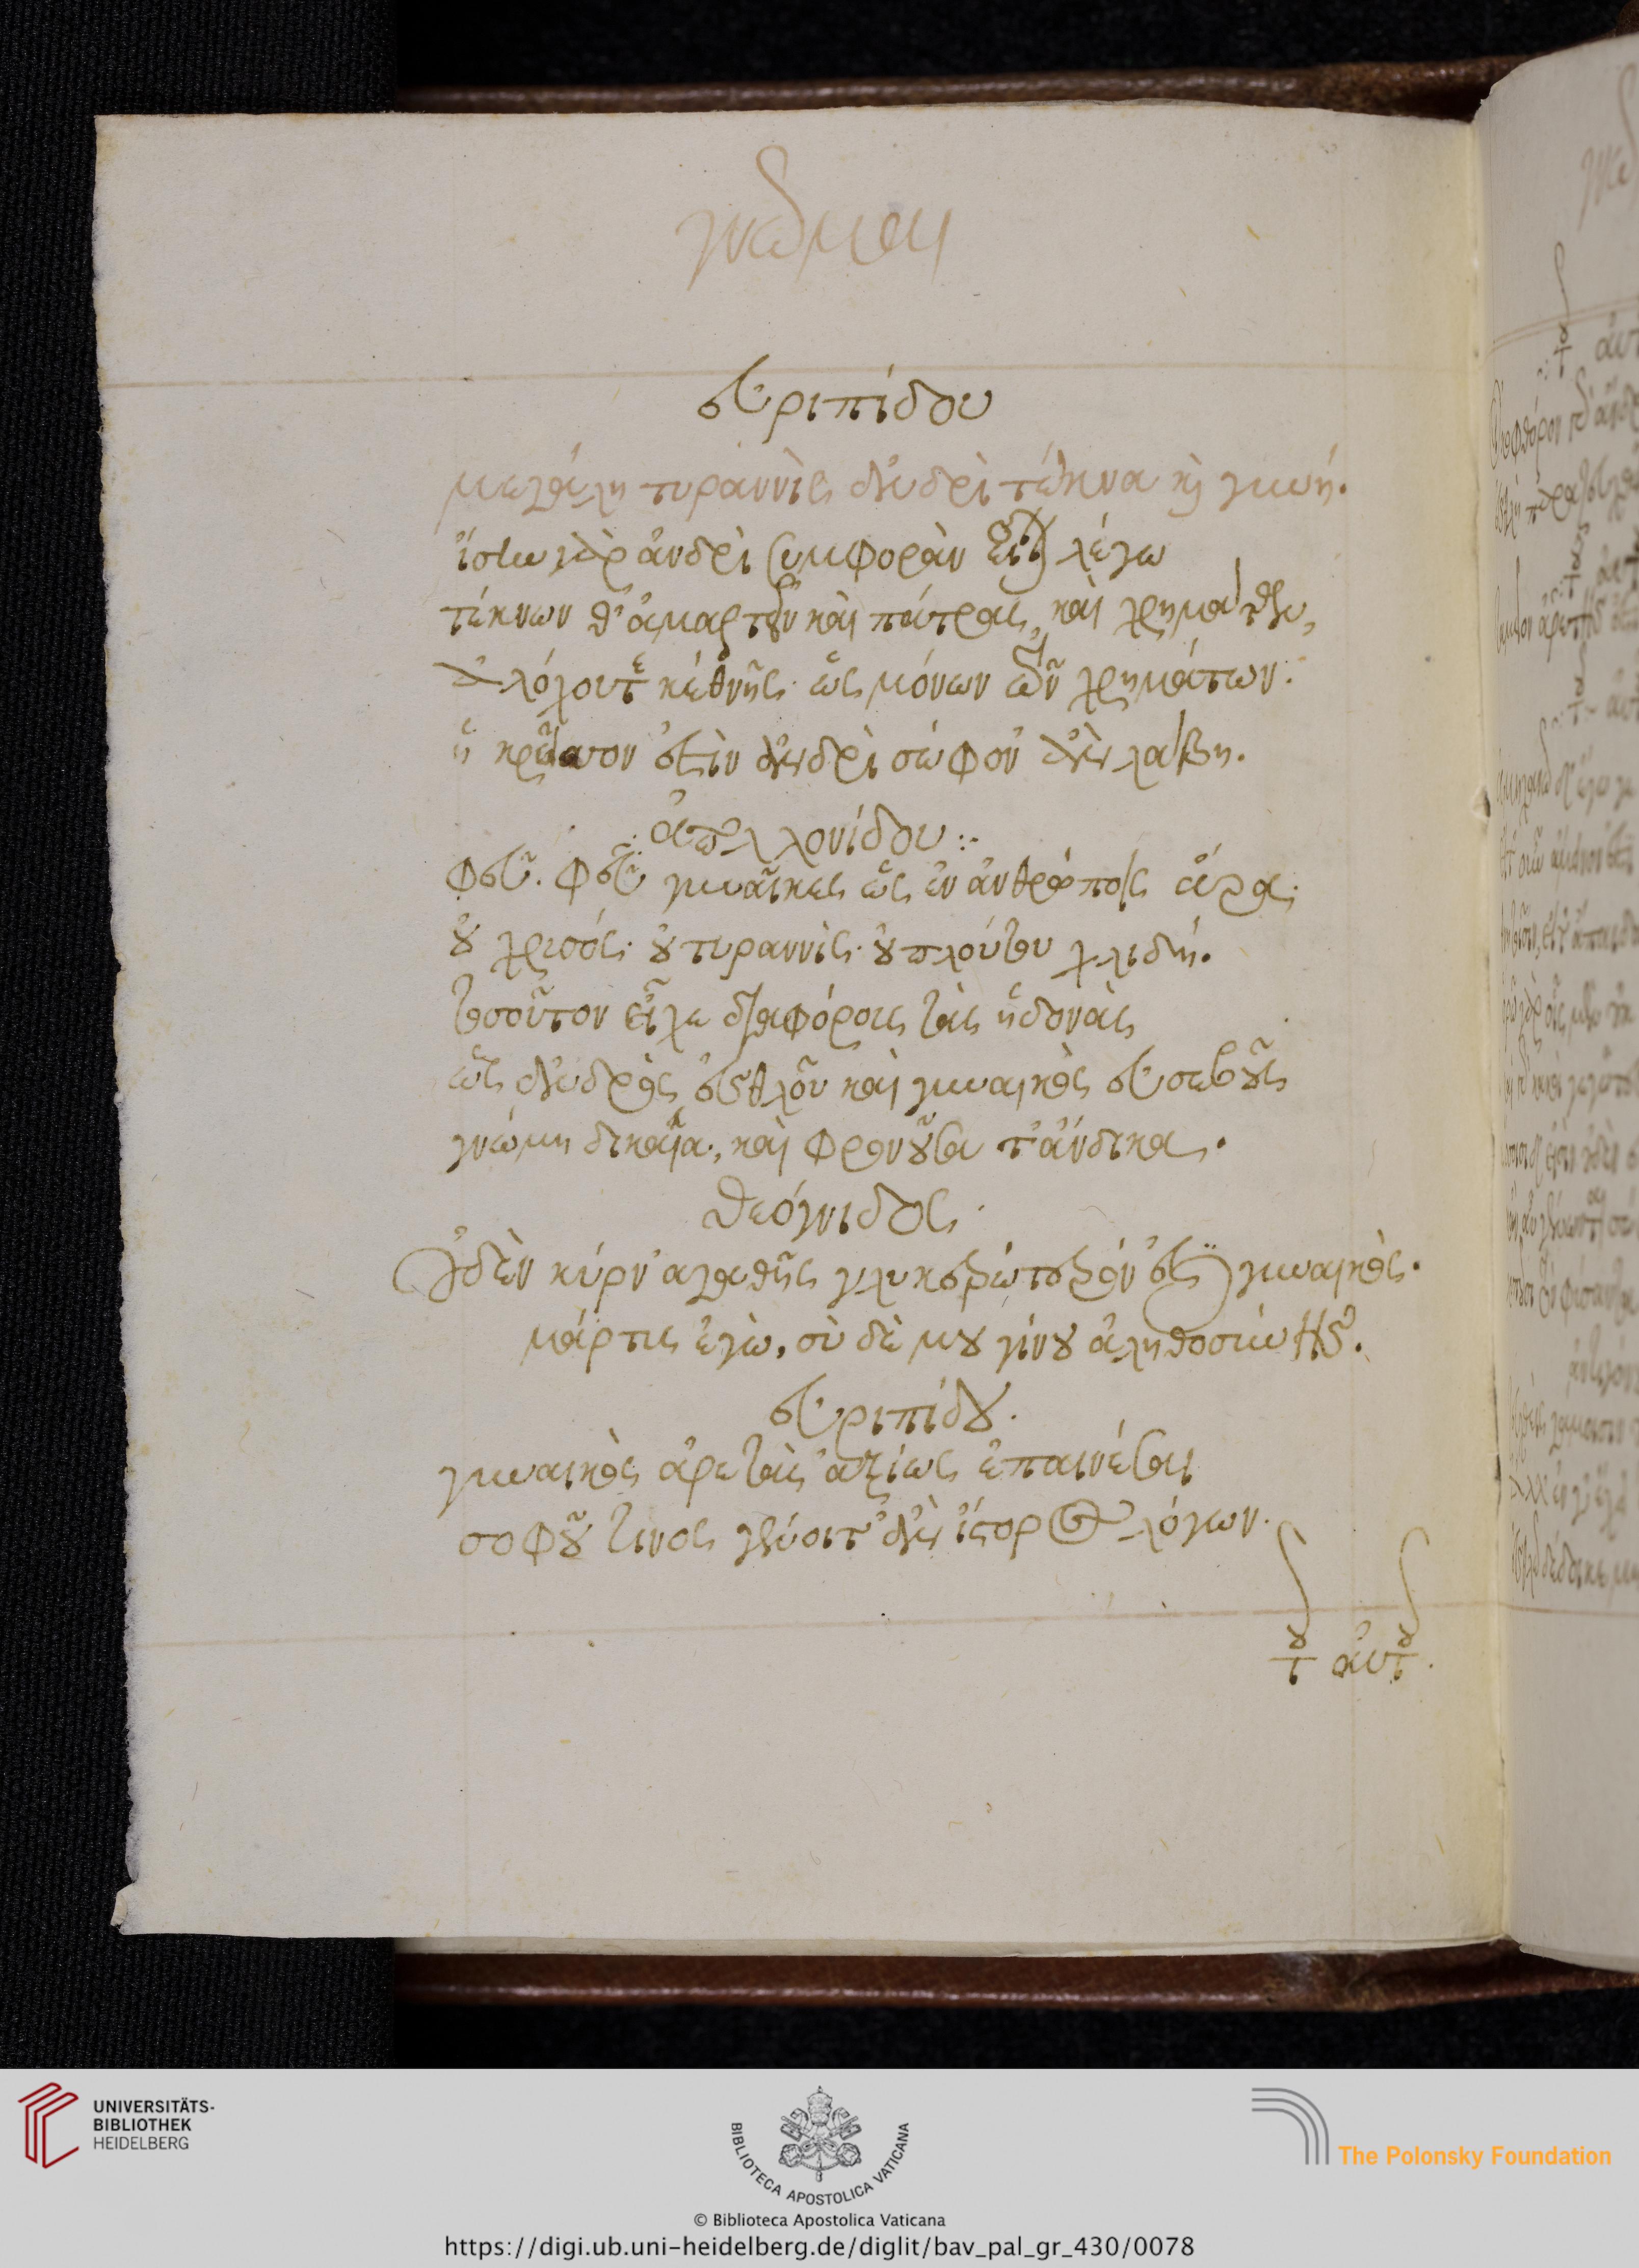 γνῶμαι
εὐριπίδου
μεγάλη τυραννὶς ἀνδρὶ τέκνα κὴ γυνή.
ἴσην γὰρ ἀνδρὶ συμφορὰν εἶναι λέγω
τέκνων θ' ἁμαρτεῖν καὶ πάτρας, καὶ χρημάτων,
ἀλόχου τε κέδνῆς· ὡς μόνων τῶν χρημάτων·
ἢ κρεῖσσον ἐστὶν ἀνδρὶ σώφρον' ἂν λάβῃ.
ἀπολλονίδου :·
φεῦ. φεῦ γυναῖκες ὡς ἐν ἀνθρώποις ἄρα·
οὐ χρυσός· οὐ τυραννὶς· οὐ πλούτου χλιδή.
τοσοῦτον εἶχε διαφόρους τὰς ἡδονὰς
ὡς ἀνδρὸς ἐσθλοῦ καὶ γυναικὸς εὐσεβοῦς
γνώμη δικαῖα., καὶ φρονοῦσα τ' ἄνδικα.
θεόγνιδος.
Οὐδὲν κύρν' ἀγαθῆς γλυκερώτερόν ἐστι γυναικὸς.
μάρτυς ἐγὼ, σὺ δὲ μου γίνου ἀληθοσύνης.
εὐριπίδου.
γυναικὸς ἀρετὰς ἀξίως ἐπαινέσαι
σοφοῦ τινος γένοιτ' ἂν ἱστορος λόγων.
τοῦ αὐτοῦ.
UNIVERSITÄTS-
BIBLIOTHEK
HEIDELBERG
BIBLIOTECA APOSTOLICA VATICANA
The Polonsky Foundation
© Biblioteca Apostolica Vaticana
https://digi.ub.uni-heidelberg.de/diglit/bav_pal_gr_430/0078